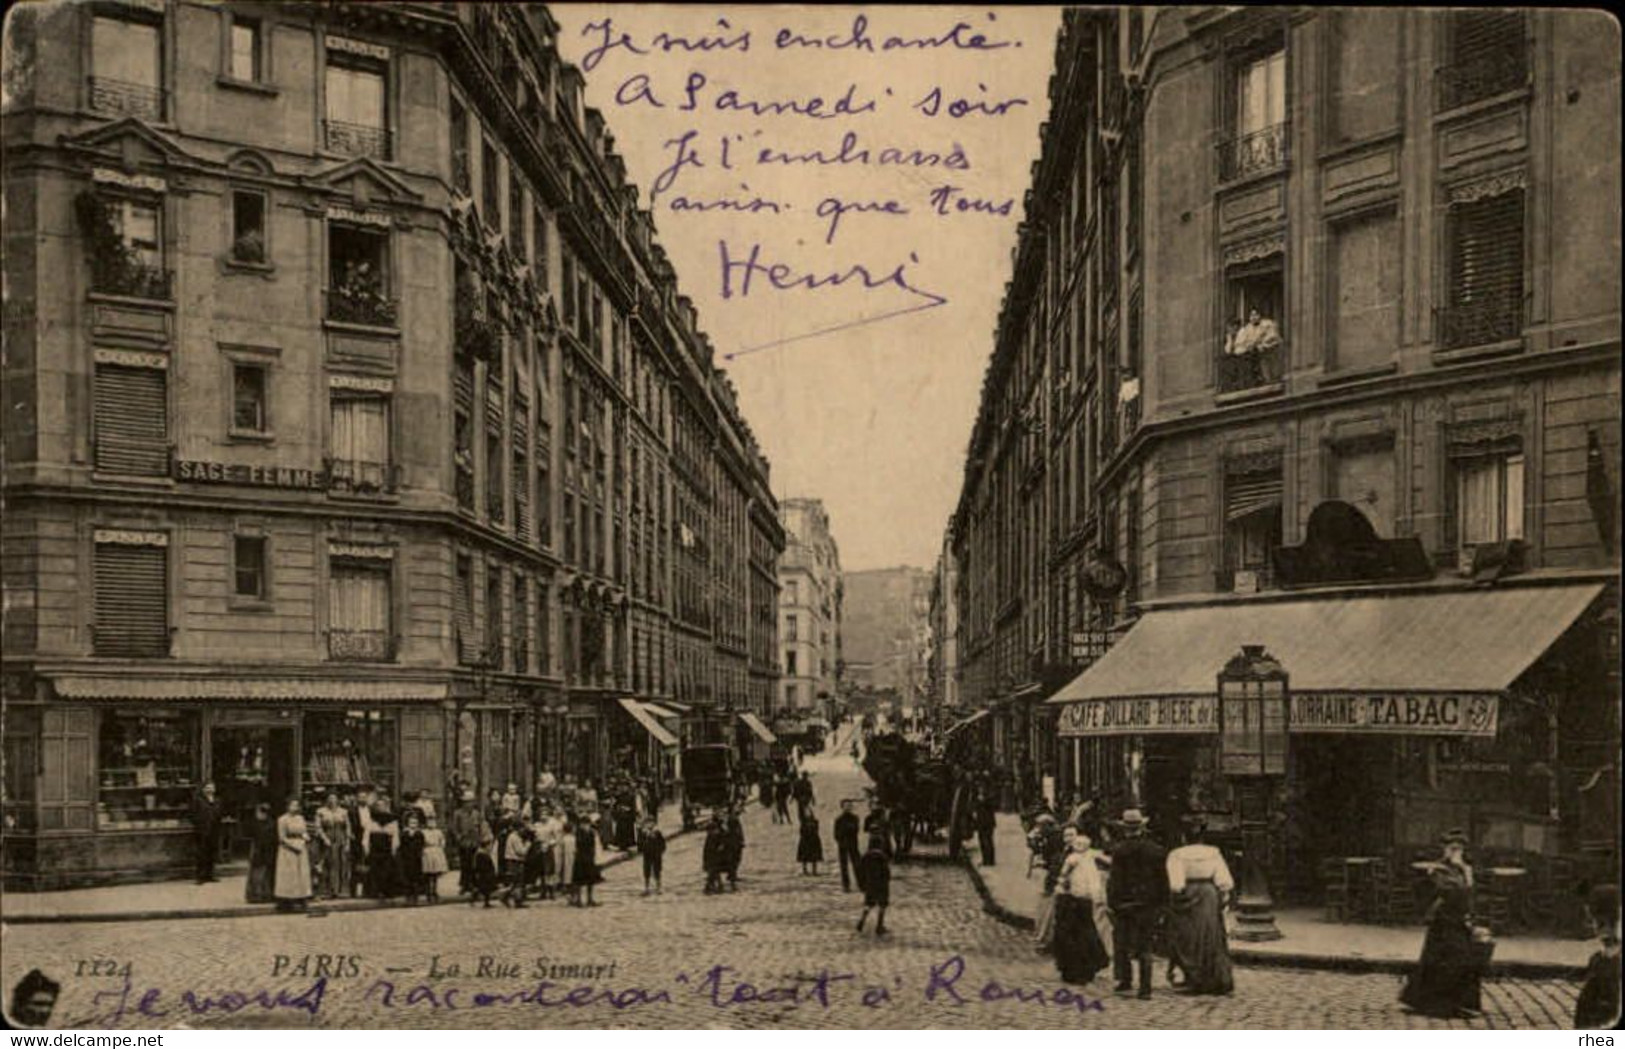 Je suis enchanté.
A Samedi soir
Je t'embrasse
ainsi que tous
Henri
SAGE-FEMME
CAFÉ BILLARD-BIÈRE de LORRAINE-TABAC
1124 PARIS. — La Rue Simart
Je vous raconterai tout à Rouen
rhea